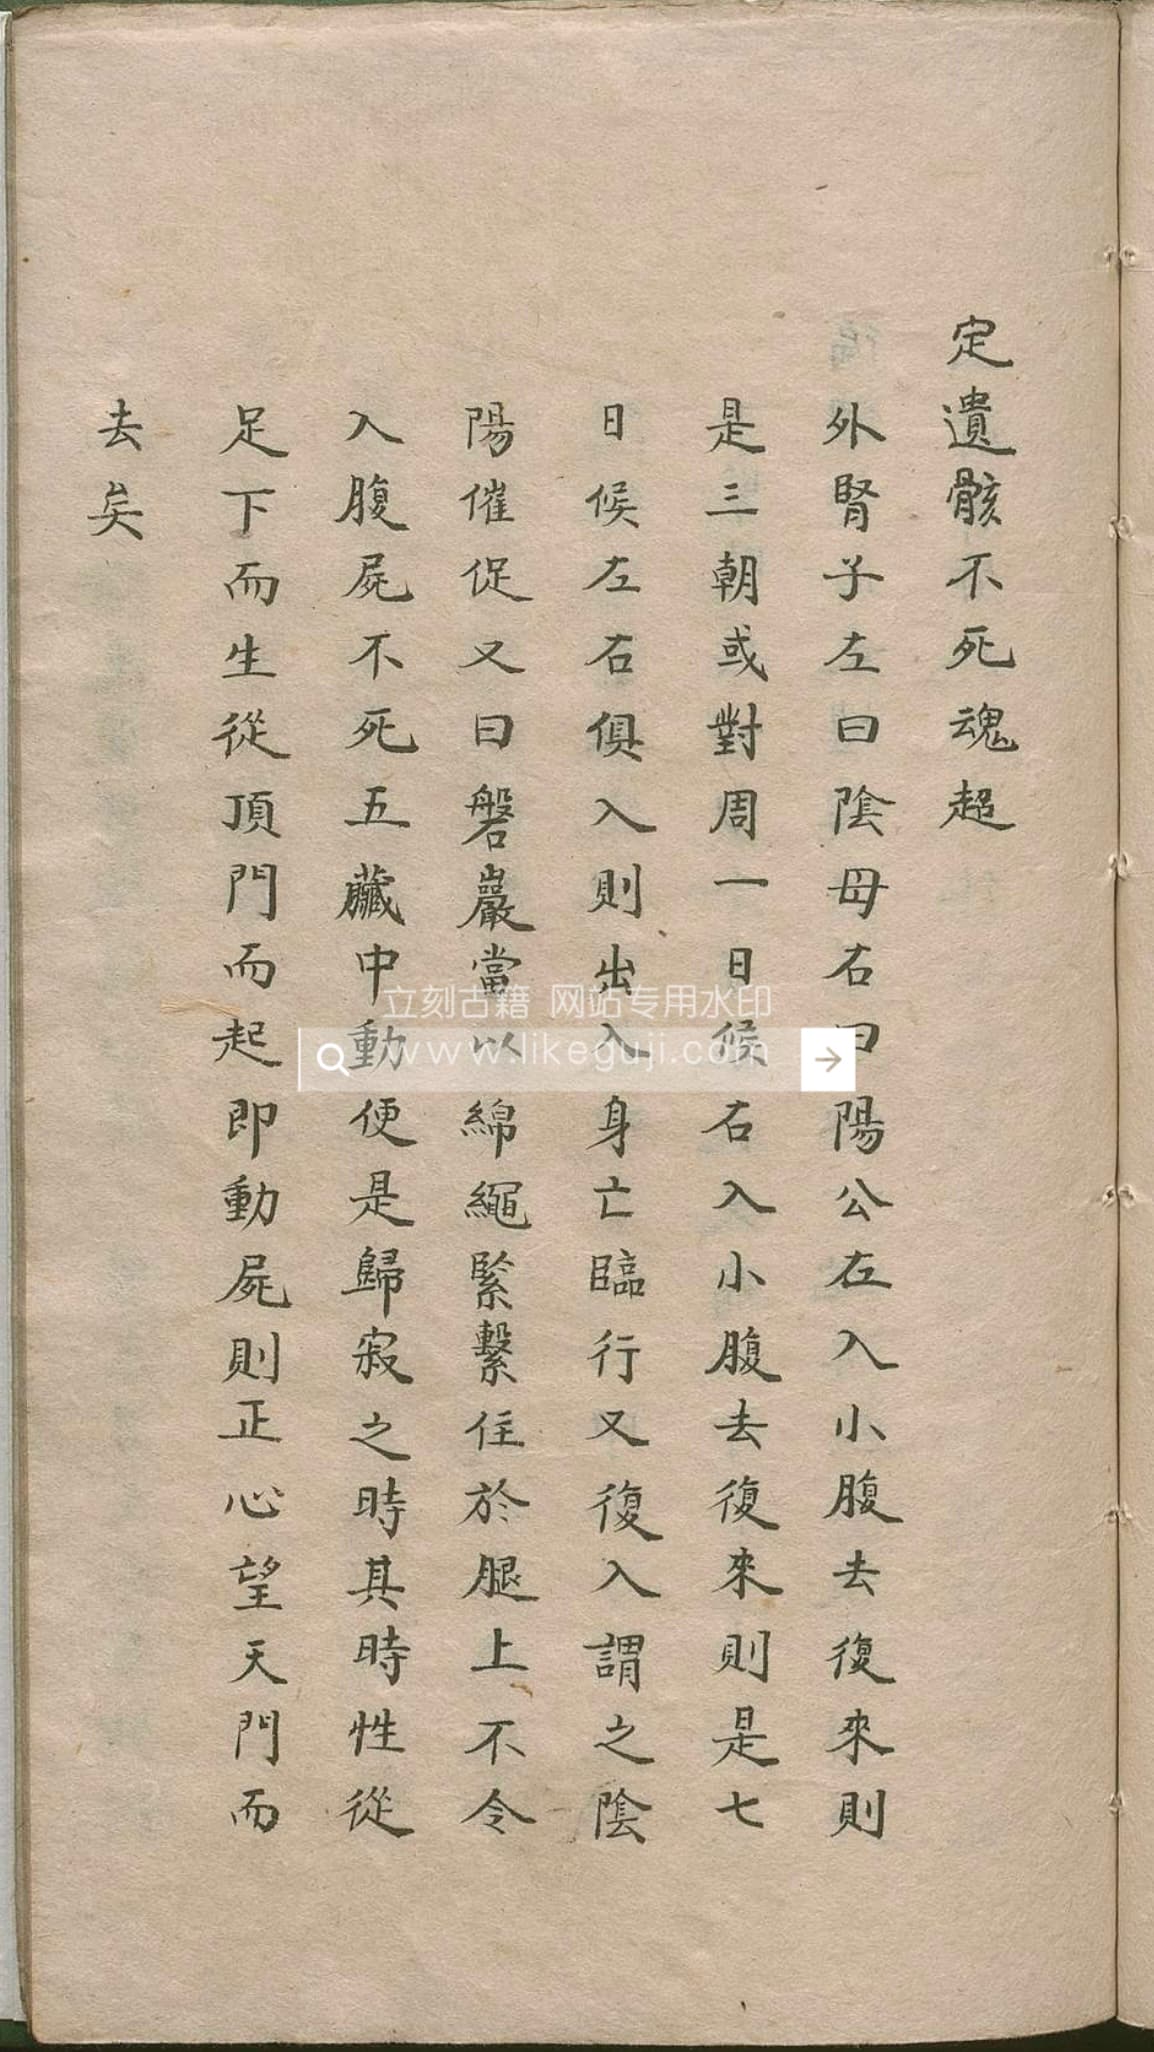 定遺骸不死魂超
外腎子左曰陰母右曰陽公左入小腹去復來則
是三朝或對周一日候右入小腹去復來則是七
日候左右俱入則出入身亡臨行又復入謂之陰
陽催促又曰磐巖當以綿繩緊繫住於腿上不令
入腹屍不死五臟中動便是歸寂之時其時性從
足下而生從頂門而起即動屍則正心望天門而
去矣
立刻古籍 网站专用水印
www.likeguji.com